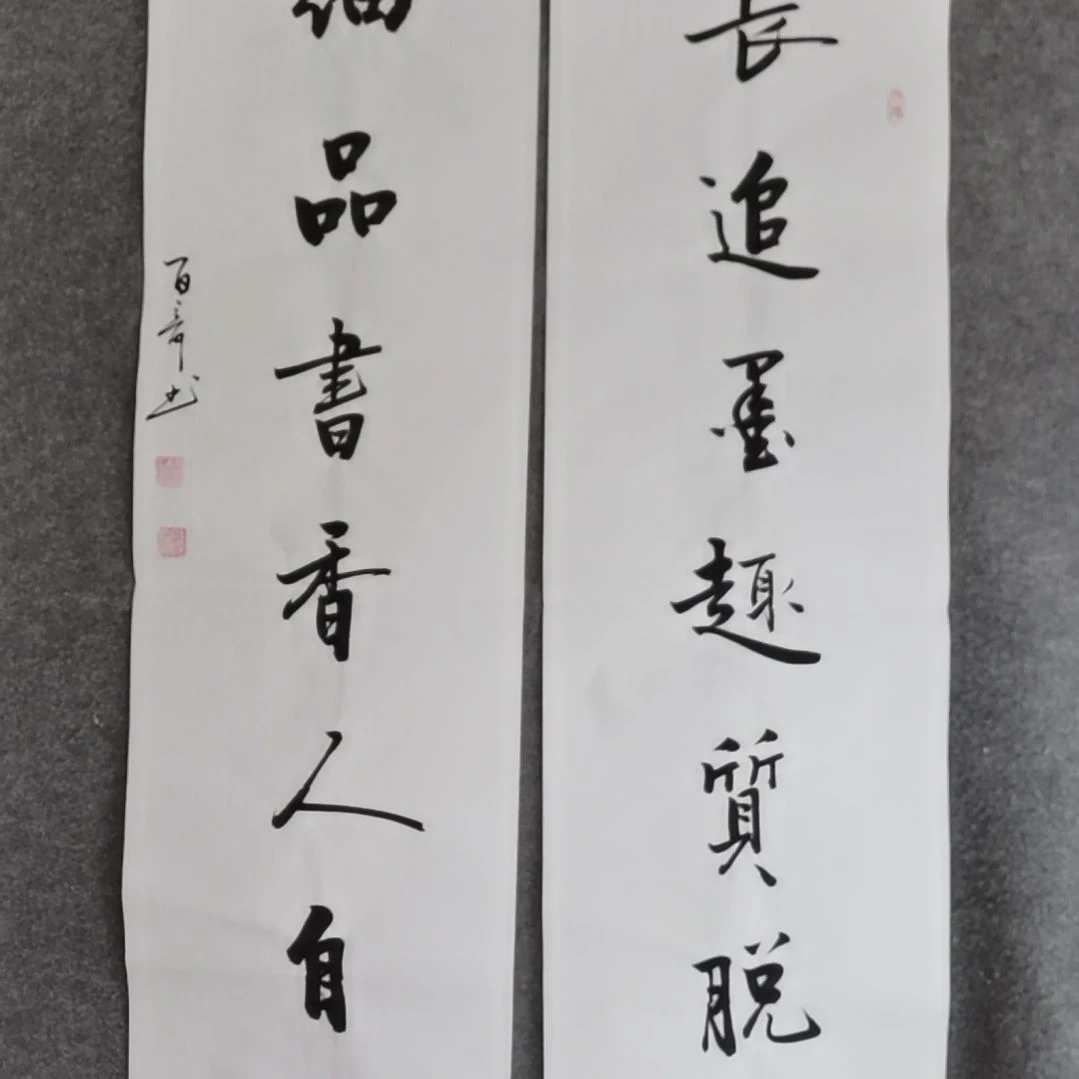 長追墨趣質脱
細品書香人自
百奇书